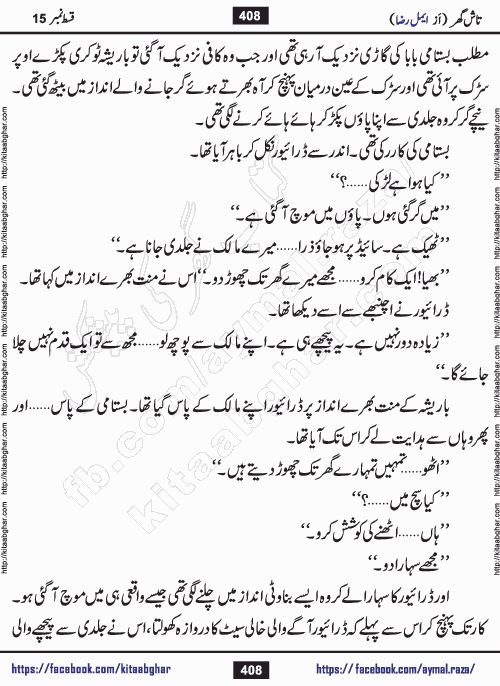 تاش گھر (از ایمل رضا) 408 قسط نمبر 15
مطلب بستامی بابا کی گاڑی نزدیک آ رہی تھی اور جب وہ کافی نزدیک آ گئی تو باریشہ ٹوکری پکڑے اوپر
سڑک پر آئی تھی اور سڑک کے عین درمیان پہنچ کر آہ بھرتے ہوئے گر جانے والے انداز میں بیٹھ گئی تھی۔
نیچے گر کر وہ جلدی سے اپنا پاؤں پکڑ کر ہائے ہائے کرنے لگی تھی۔
بستامی کی کار رکی تھی۔ اندر سے ڈرائیور نکل کر باہر آیا تھا۔
’’کیا ہوا ہے لڑکی......؟‘‘
’’میں گر گئی ہوں۔ پاؤں میں موچ آ گئی ہے۔‘‘
’’ٹھیک ہے۔ سائیڈ پر ہو جاؤ ذرا...... میرے مالک نے جلدی جانا ہے۔‘‘
’’بھیا! ایک کام کرو...... مجھے میرے گھر تک چھوڑ دو۔‘‘ اس نے منت بھرے انداز میں کہا تھا۔
ڈرائیور نے اچنبھے سے اسے دیکھا تھا۔
’’زیادہ دور نہیں ہے۔ یہ پیچھے ہی ہے۔ اپنے مالک سے پوچھ لو...... مجھ سے تو ایک قدم نہیں چلا
جائے گا۔‘‘
باریشہ کے منت بھرے انداز پر ڈرائیور اپنے مالک کے پاس گیا تھا۔ بستامی کے پاس...... اور
پھر وہاں سے ہدایت لے کر اس تک آیا تھا۔
’’اٹھو...... تمہیں تمہارے گھر تک چھوڑ دیتے ہیں۔‘‘
’’کیا سچ میں......؟‘‘
’’ہاں...... اٹھنے کی کوشش کرو۔‘‘
’’مجھے سہارا دو۔‘‘
اور ڈرائیور کا سہارا لے کر وہ ایسے بناوٹی انداز میں چلنے لگی تھی جیسے واقعی ہی میں موچ آ گئی ہو۔
کار تک پہنچ کر اس سے پہلے کہ ڈرائیور آگے والی خالی سیٹ کا دروازہ کھولتا، اس نے جلدی سے پیچھے والی
https://facebook.com/kitaabghar 408 https://facebook.com/aymal.raza/
http://kitaabghar.com http://kitaabghar.com http://kitaabghar.com http://kitaabghar.com http://kitaabghar.com
http://kitaabghar.com http://kitaabghar.com http://kitaabghar.com http://kitaabghar.com http://kitaabghar.com
fb.com/aymal.raza/
kitaabghar.com